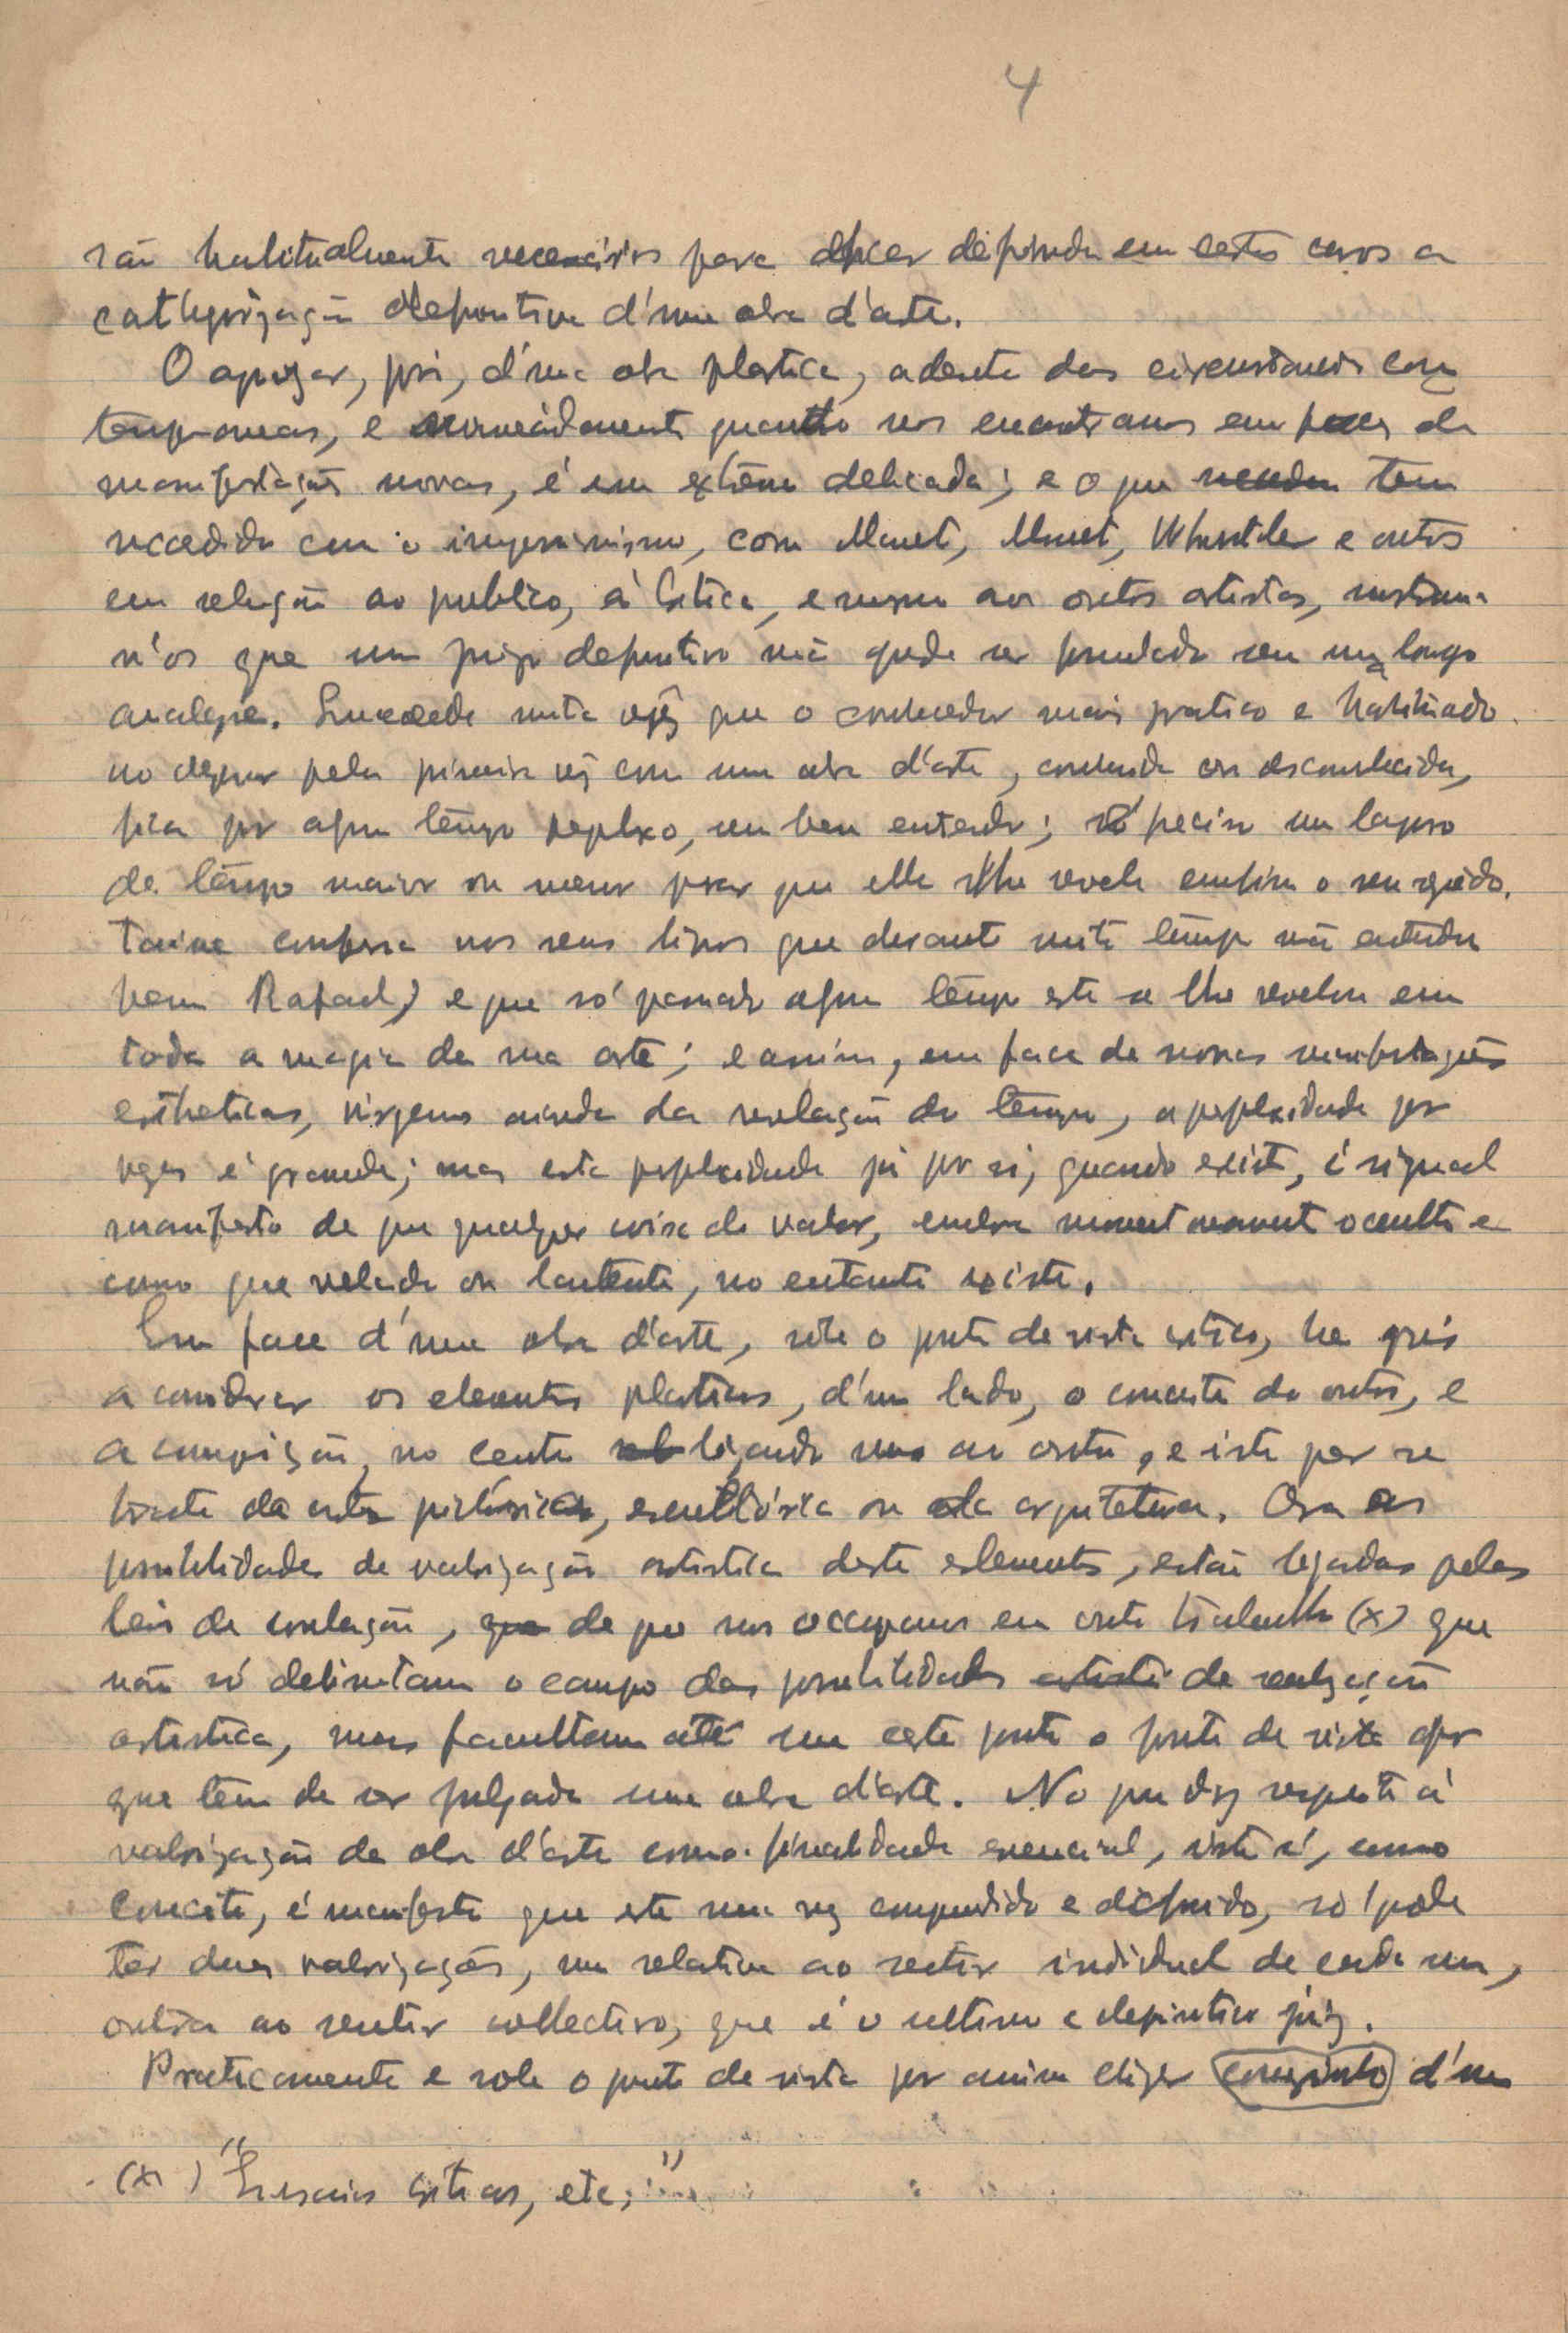 4
são habitualmente necessários para definida em certos casos a
cathegorização definitiva d'uma obra d'arte.
O apreçar, pois, d'uma obra plastica, das circunstancias con
temporaneas, e nomeadamente quando nos encontramos em face de
manifestações novas, é em extremo delicada; e o que tem
succedido com o impressionismo, com Manet, Monet, Whistler e outros
em relação ao publico, á Critica, e mesmo aos outros artistas, mostra
n'os que um juizo definitivo não póde ser formulado sem um longo
Succede muita vez que o conhecedor mais pratico e habituado
ao deparar pela primeira vez com uma obra d'arte, conhecida ou desconhecida,
fica por algum tempo perplexo, sem bem entender; é preciso um lapso
de tempo maior ou menor para que ella lhe revele emfim o seu segredo.
Taine confessa nos seus livros que durante muito tempo não entendeu
bem Rafael, e que só passado algum tempo este se lhe revelou em
toda a magia da sua arte; e assim, em face de novas manifestações
estheticas, virgens ainda da revelação do tempo, a perplexidade por
vezes é grande; mas esta perplexidade já por si, quando existe, é signal
manifesto de que qualquer coisa de valor, embora occulto e
como que velada ou latente, no entanto existe.
Em face d'uma obra d'arte, sob o ponto de vista critico, ha pois
a considerar os elementos plasticos, d'um lado, o conceito do outro, e
a composição, no centro ligando um ao outro, e isto quer se
trate da arte pictórica, escultórica ou da arquitetura. Ora as
possibilidades de valorização artistica deste elementos, estão regadas pelas
leis da correlação, de que nos occupamos em outro trabalho (x) que
não só delimitam o campo das possibilidades de realização
artistica, mas facultam até um certo ponto o ponto de vista por
que tem de ser julgada uma obra d'arte. No que diz respeito á
valorização da obra d'arte como finalidade essencial, isto é, como
Conceito, é manifesto que este uma vez compreendido e definido, só póde
ter duas valorizações, uma relativa ao sentir individual de cada um,
outra ao sentir collectivo, que é o ultimo e definitivo juiz.
Praticamente e sob o ponto de vista por assim dizer d'um
(x) "Ensaios criticos, etc."